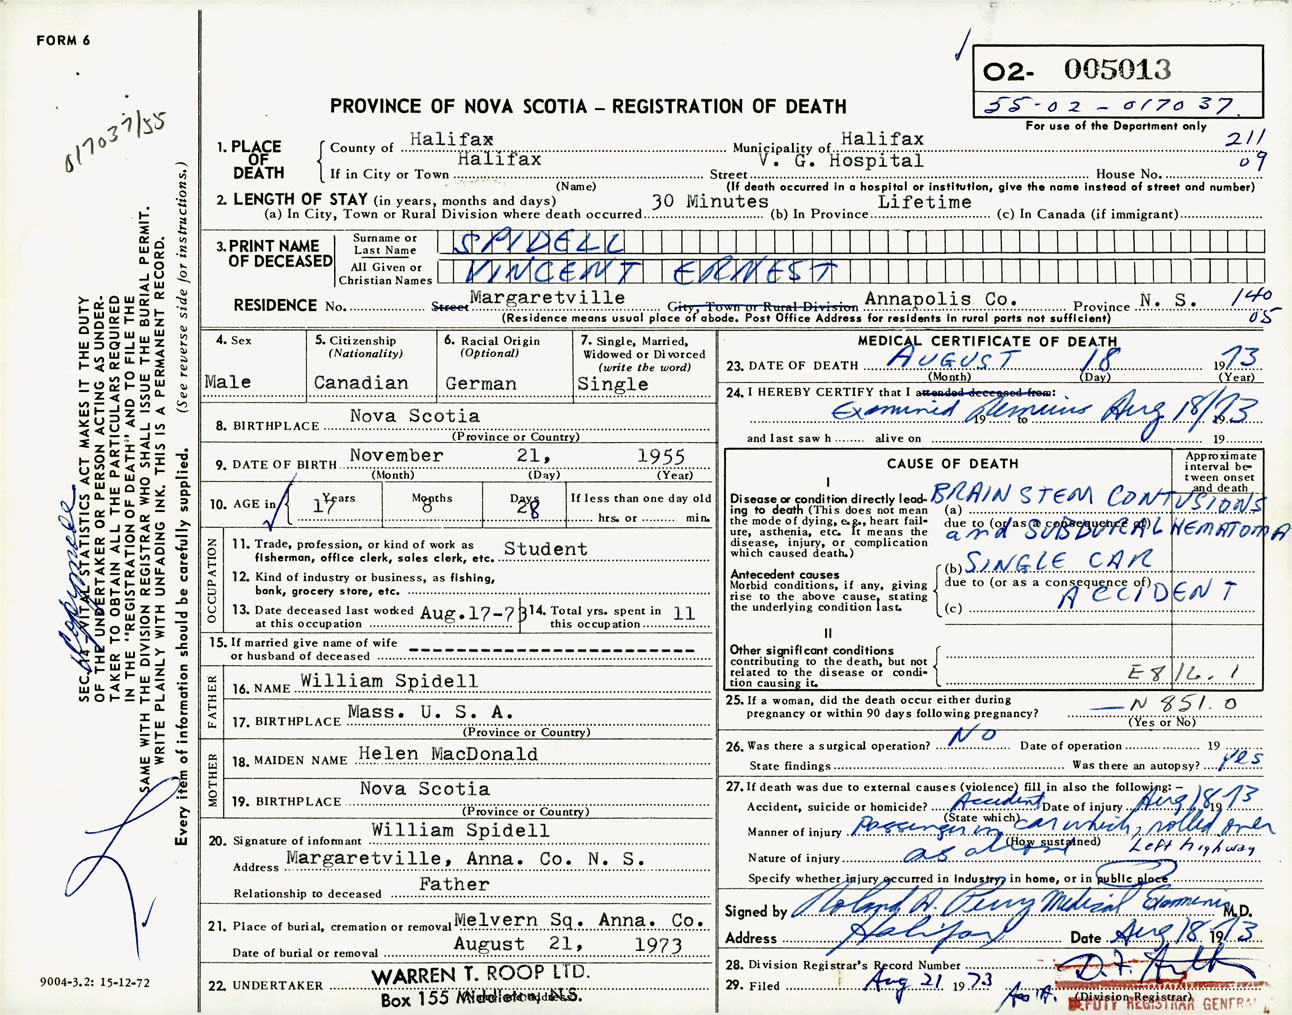 FORM 6
017037/55
02- 005013
55-02-017037
For use of the Department only
PROVINCE OF NOVA SCOTIA – REGISTRATION OF DEATH
211
09
1. PLACE OF DEATH
County of Halifax Municipality of Halifax
If in City or Town Halifax Street V. G. Hospital House No.
(Name) (If death occurred in a hospital or institution, give the name instead of street and number)
2. LENGTH OF STAY (in years, months and days)
(a) In City, Town or Rural Division where death occurred 30 Minutes (b) In Province Lifetime (c) In Canada (if immigrant)
3. PRINT NAME OF DECEASED
Surname or Last Name SPIDELL
All Given or Christian Names VINCENT ERNEST
RESIDENCE No. Street Margaretville City, Town or Rural Division Annapolis Co. Province N. S. 140
05
(Residence means usual place of abode. Post Office Address for residents in rural parts not sufficient)
4. Sex
Male
5. Citizenship
(Nationality)
Canadian
6. Racial Origin
(Optional)
German
7. Single, Married,
Widowed or Divorced
(write the word)
Single
8. BIRTHPLACE Nova Scotia
(Province or Country)
9. DATE OF BIRTH November 21, 1955
(Month) (Day) (Year)
10. AGE in Years 17 Months 8 Days 28 If less than one day old
hrs. or min.
OCCUPATION
11. Trade, profession, or kind of work as
fisherman, office clerk, sales clerk, etc. Student
12. Kind of industry or business, as fishing,
bank, grocery store, etc.
13. Date deceased last worked
at this occupation Aug.17-73
14. Total yrs. spent in
this occupation 11
15. If married give name of wife
or husband of deceased
FATHER
16. NAME William Spidell
17. BIRTHPLACE Mass. U. S. A.
(Province or Country)
MOTHER
18. MAIDEN NAME Helen MacDonald
19. BIRTHPLACE Nova Scotia
(Province or Country)
20. Signature of informant William Spidell
Address Margaretville, Anna. Co. N. S.
Relationship to deceased Father
21. Place of burial, cremation or removal Melvern Sq. Anna. Co.
Date of burial or removal August 21, 1973
22. UNDERTAKER WARREN T. ROOP LTD.
Box 155 Middleton, N.S.
MEDICAL CERTIFICATE OF DEATH
23. DATE OF DEATH AUGUST 18 1973
(Month) (Day) (Year)
24. I HEREBY CERTIFY that I attended deceased from:
Examined Remains Aug 18/73
19 to 19
and last saw h alive on 19
CAUSE OF DEATH
Approximate
interval be-
tween onset
and death
I
Disease or condition directly lead-
ing to death (This does not mean
the mode of dying, e.g., heart fail-
ure, asthenia, etc. It means the
disease, injury, or complication
which caused death.)
(a) BRAINSTEM CONTUSIONS
due to (or as a consequence of)
and SUBDURAL HEMATOMA
Antecedent causes
Morbid conditions, if any, giving
rise to the above cause, stating
the underlying condition last.
(b) SINGLE CAR
due to (or as a consequence of)
(c) ACCIDENT
II
Other significant conditions
contributing to the death, but not
related to the disease or condi-
tion causing it.
E816.1
25. If a woman, did the death occur either during
pregnancy or within 90 days following pregnancy? — N 851.0
(Yes or No)
26. Was there a surgical operation? NO Date of operation 19
State findings Was there an autopsy? yes
27. If death was due to external causes (violence) fill in also the following: –
Accident, suicide or homicide? Accident Date of injury Aug 18 1973
(State which)
Manner of injury Passenger in car which, rolled over
(How sustained) Left highway
Nature of injury as above
Specify whether injury occurred in Industry, in home, or in public place
Signed by Roland A. Perry Medical Examiner M.D.
Address Halifax Date Aug 18 1973
28. Division Registrar's Record Number
29. Filed Aug 21 1973
(Division Registrar)
DEPUTY REGISTRAR GENERAL
SEC. 14 – VITAL STATISTICS ACT MAKES IT THE DUTY
OF THE UNDERTAKER OR PERSON ACTING AS UNDER-
TAKER TO OBTAIN ALL THE PARTICULARS REQUIRED
IN THE "REGISTRATION OF DEATH" AND TO FILE THE
SAME WITH THE DIVISION REGISTRAR WHO SHALL ISSUE THE BURIAL PERMIT.
WRITE PLAINLY WITH UNFADING INK. THIS IS A PERMANENT RECORD.
Every item of information should be carefully supplied. (See reverse side for instructions.)
9004-3.2: 15-12-72